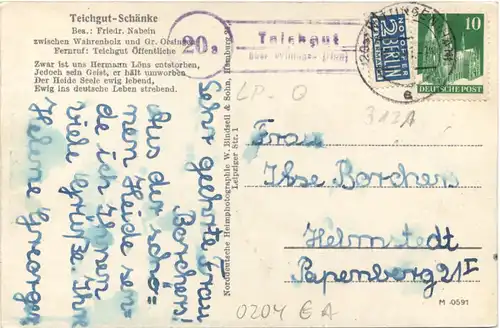 Teichgut-Schänke
Bes.: Friedr. Nabein
zwischen Wahrenholz und Gr. Oesingen
Fernruf: Teichgut Öffentliche
Zwar ist uns Hermann Löns entstorben,
Jedoch sein Geist, er hält umworben
Der Heide Seele ewig lebend,
Ewig ins deutsche Leben strebend.
20a
Teichgut
über Wittingen (Han)
NOTOPFER
2 BERLIN
STEUERMARKE
10
DEUTSCHE POST
LP-Q
312A
Sehr geehrte Frau
Borchers!
Aus der schö-
nen Heide sen-
de ich Ihnen
viele Grüße. Ihre
Helene Gregorgen
Norddeutsche Heimphotographie W. Blindzell & Sohn, Hamburg
Leipziger Str. 1
Frau
Ilse Borchers
Helmstedt
Papenberg 21 I
M 0591
0204 EA